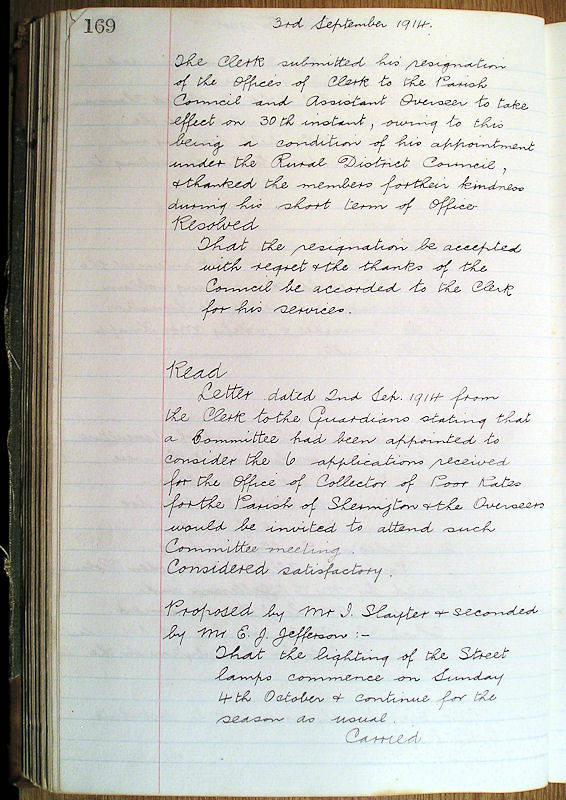 169
3rd September 1914.
The Clerk submitted his resignation
of the Offices of Clerk to the Parish
Council and Assistant Overseer to take
effect on 30th instant, owing to this
being a condition of his appointment
under the Rural District Council,
& thanked the members for their kindness
during his short term of Office
Resolved
That the resignation be accepted
with regret & the thanks of the
Council be accorded to the Clerk
for his services.
Read
Letter dated 2nd Sep. 1914 from
the Clerk to the Guardians stating that
a Committee had been appointed to
consider the 6 applications received
for the Office of Collector of Poor Rates
for the Parish of & the Overseers
would be invited to attend such
Committee meeting.
Considered satisfactory.
Proposed by Mr J. Slayter & seconded
by Mr E. J. Jefferson :-
That the lighting of the Street
lamps commence on Sunday
4th October & continue for the
season as usual.
Carried